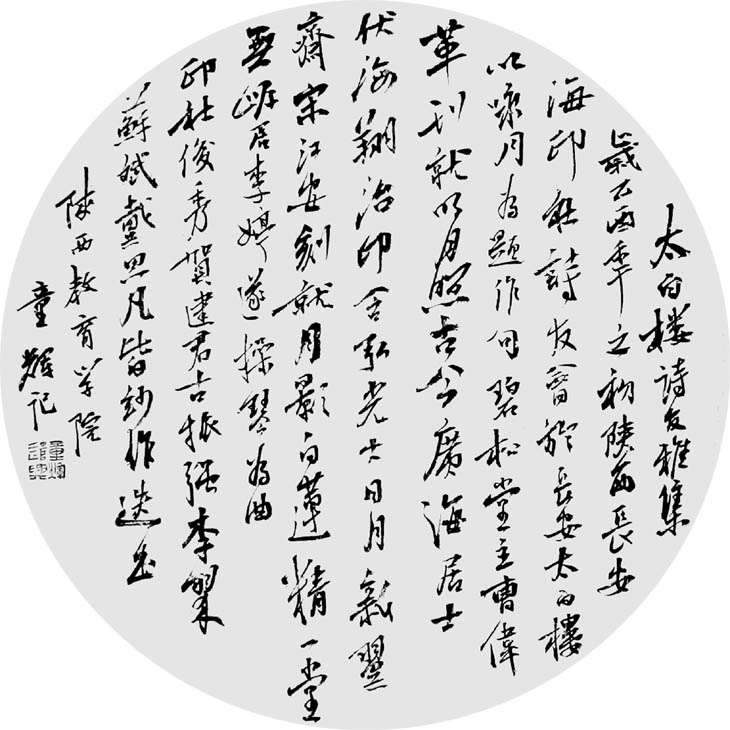 太白楼詩友雅集
歲乙酉季之初陝西長安
海印社詩友會於長安太白樓
以咏月为題作句碧松堂主曹偉
華刊就明月照古今廣海居士
伏海翔治印舍弘光大日月新翌
齋宋江安刻就月影白蓮精一堂
居李婷遂操琴为曲
印社俊秀賀建君古振强李
蘇斌戴思凡皆妙作迭出
陝西教育学院
童輝記